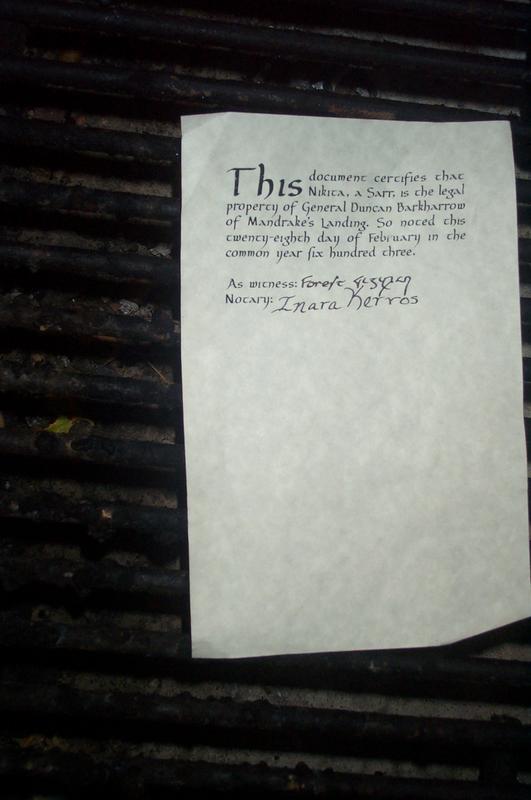 This document certifies that
Nikita, a Sarr, is the legal
property of General Duncan Barkharrow
of Mandrake's Landing. So noted this
twenty-eighth day of February in the
common year six hundred three.
As witness: Forest
Notary: Inara Kerros